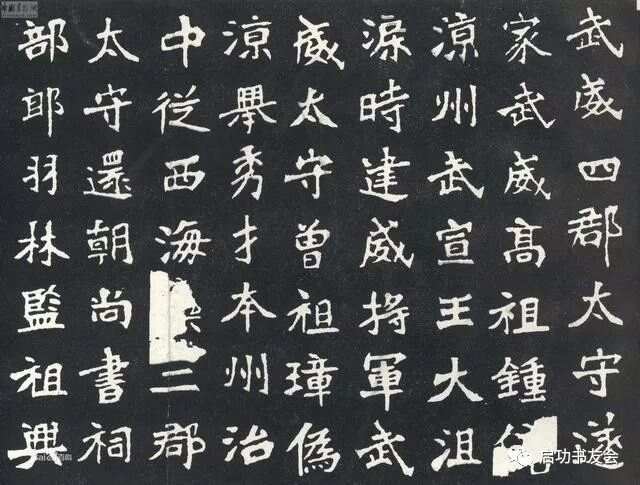 武威四郡太守遂
家武威高祖鍾
涼州武宣王大沮
渠時建威將軍武
威太守曾祖璋偽
涼舉秀才本州治
中從西海二郡
太守還朝尚書祠
部郎羽林監祖興
启功书友会